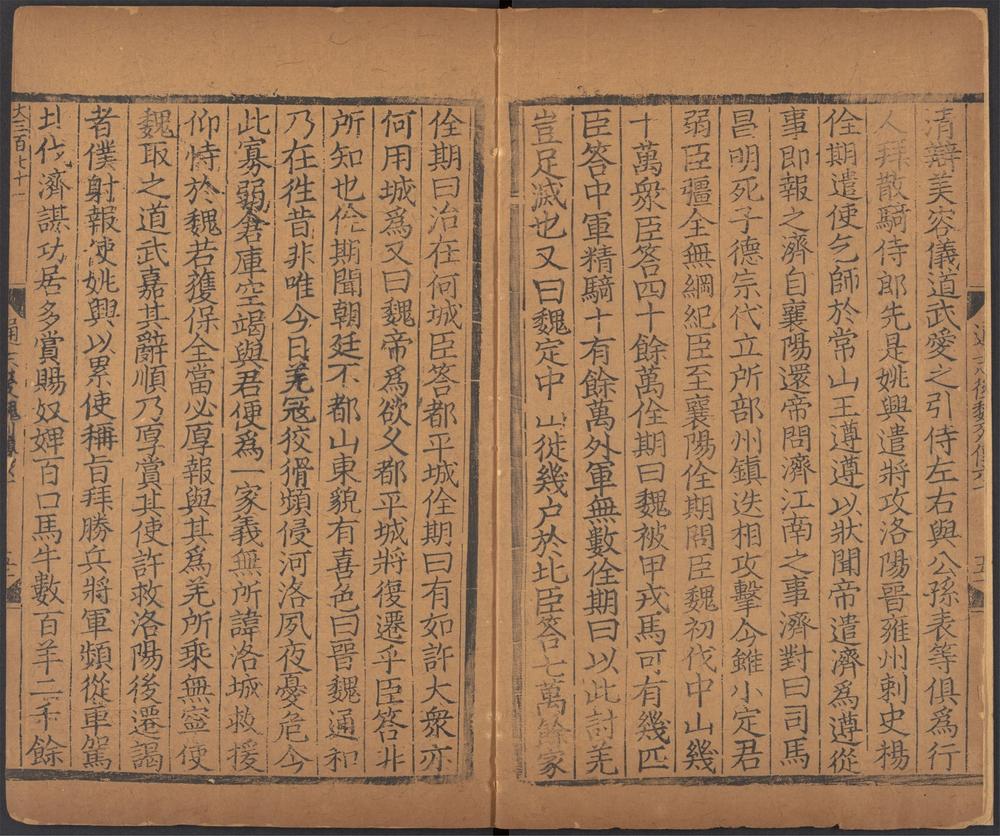 清辯美容儀道武愛之引侍左右與公孫表等俱爲行
人拜散騎侍郎先是姚興遣將攻洛陽晉雍州刺史楊
佺期遣使乞師於常山王遵遵以狀聞帝遣濟爲遵從
事即報之濟自襄陽還帝問濟江南之事濟對曰司馬
昌明死子德宗代立所部州鎮迭相攻擊今雖小定君
弱臣彊全無綱紀臣至襄陽佺期問臣魏初伐中山幾
十萬衆臣答四十餘萬佺期曰魏被甲戎馬可有幾匹
臣答中軍精騎十有餘萬外軍無數佺期曰以此討羌
豈足滅也又曰魏定中山徙幾户於北臣答七萬餘家
佺期曰治在何城臣答都平城佺期曰有如許大衆亦
何用城爲又曰魏帝爲欲久都平城將復遷乎臣答非
所知也佺期聞朝廷不都山東貌有喜色曰晉魏通和
乃在徃昔非唯今日羌冦狡猾頻侵河洛夙夜憂危今
此寡弱倉庫空竭與君便爲一家義無所諱洛城救援
仰恃於魏若獲保全當必厚報與其爲羌所乘無寧使
魏取之道武嘉其辭順乃厚賞其使許救洛陽後遷謁
者僕射報使姚興以累使稱旨拜勝兵將軍頻從車駕
北伐濟謀功居多賞賜奴婢百口馬牛數百羊二千餘
大三百七十一